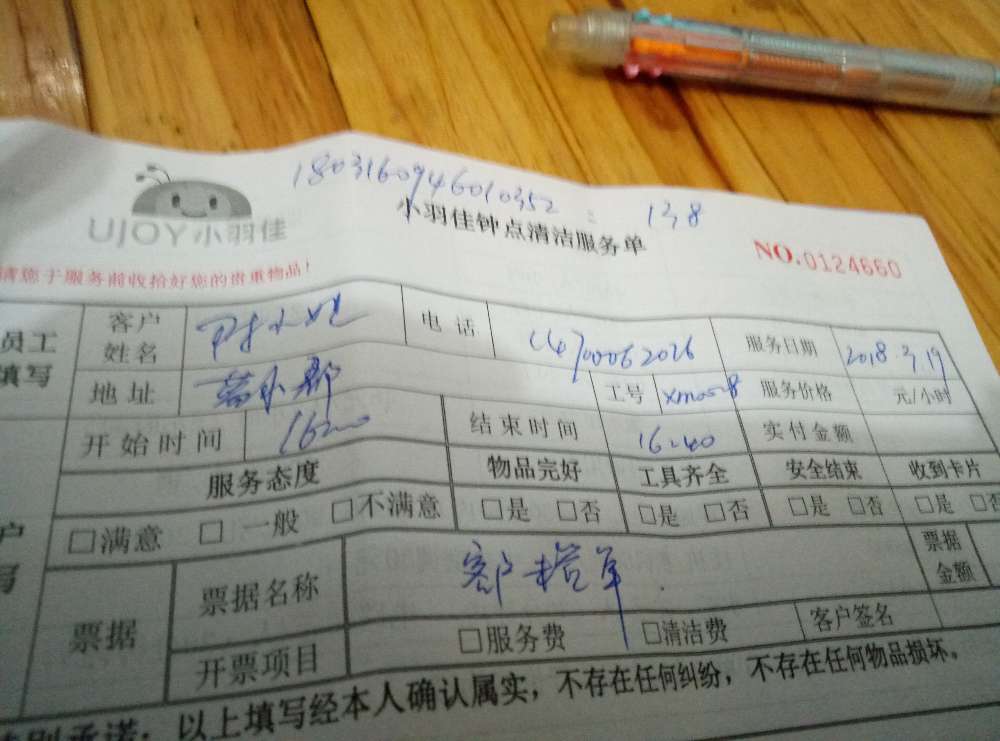 1803160946010352 : 138
UJOY小羽佳
小羽佳钟点清洁服务单
NO.0124660
请您于服务前收拾好您的贵重物品!
员工
填写
客户
姓名
电话
服务日期 2018
地址
工号 服务价格 元/小时
开始时间 结束时间 16:40 实付金额
服务态度 物品完好 工具齐全 安全结束 收到卡片
□满意 □一般 □不满意 □是 □否 □是 □否 □是 □否 □是 □否
票据 票据名称 票据
金额
开票项目 □服务费 □清洁费 客户签名
特别承诺:以上填写经本人确认属实,不存在任何纠纷,不存在任何物品损坏。